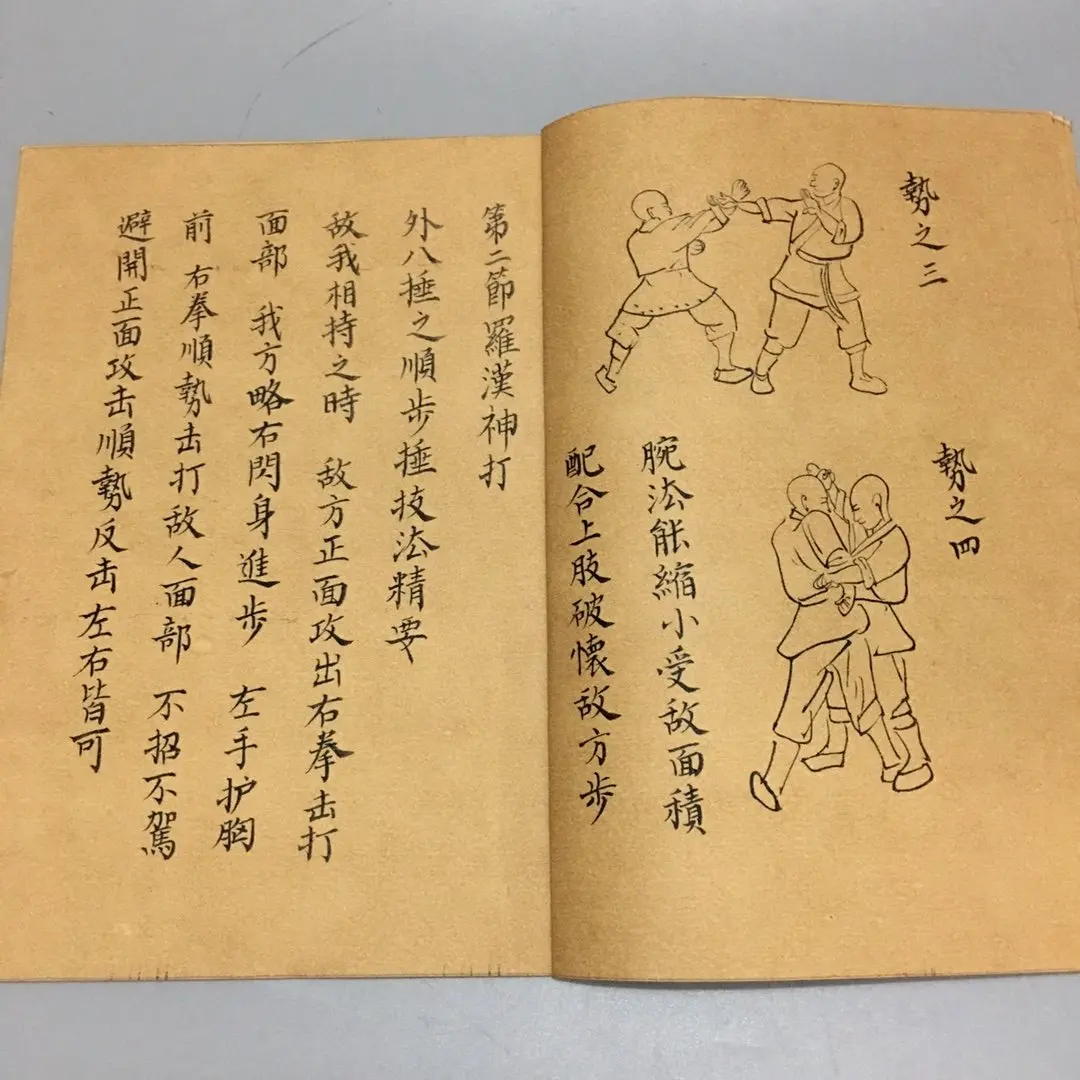 勢之三
勢之四
腕法能縮小受敌面積
配合上肢破懐敌方步
第二節羅漢神打
外八捶之順步捶技法精要
敌我相持之時 敌方正面攻出右拳击打
面部 我方略右閃身進步 左手护胸
前 右拳順勢击打敌人面部 不招不駕
避開正面攻击順勢反击左右皆可